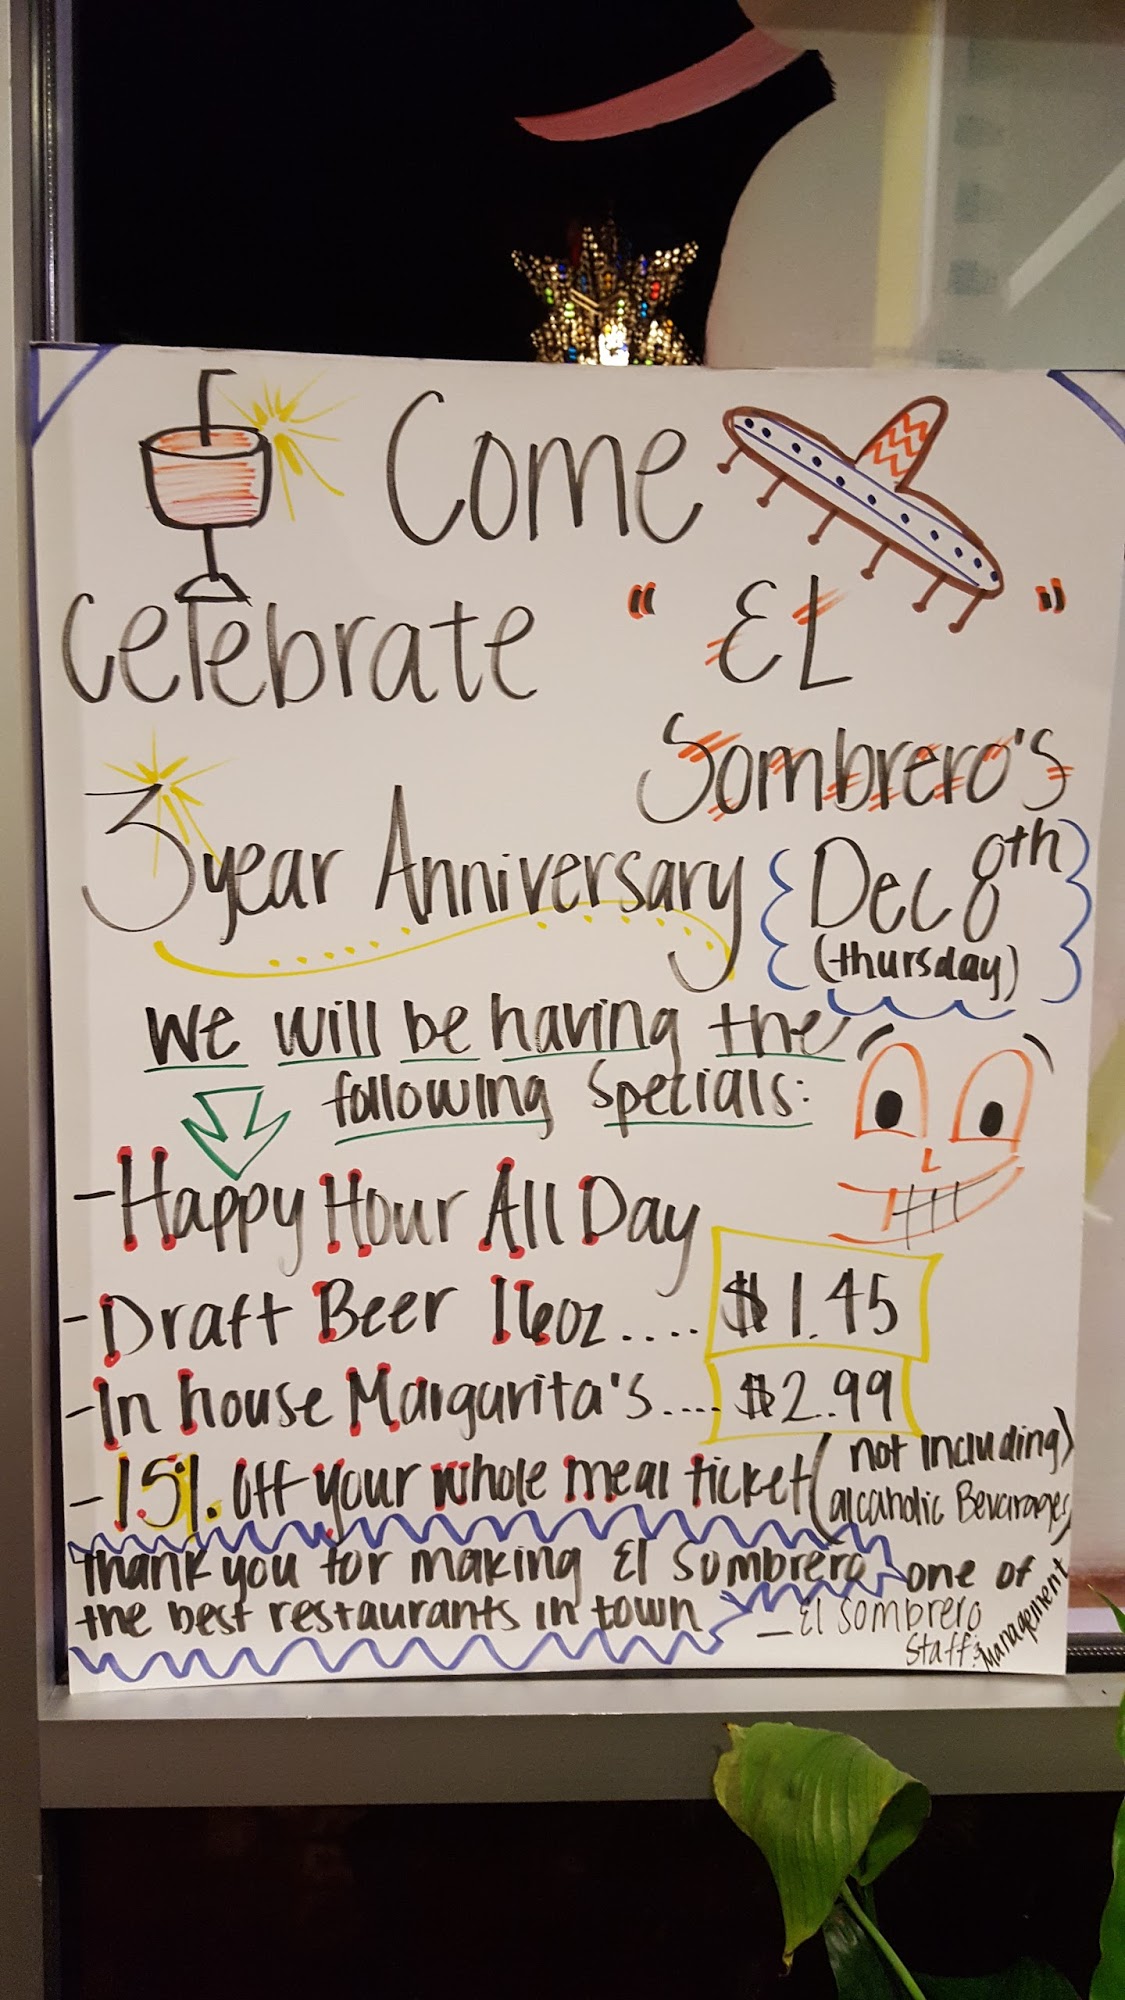 Come
Celebrate "EL
Sombrero's"
3 year Anniversary
Dec 8th
(thursday)
We will be having the
following Specials:
- Happy Hour All Day
- Draft Beer 16oz.... $1.45
- In house Margarita's.... $2.99
- 15%. Off your whole meal ticket (not including
alcaholic Beverages)
Thank you for making El Sombrero one of
the best restaurants in town
- El Sombrero
Staff & Management